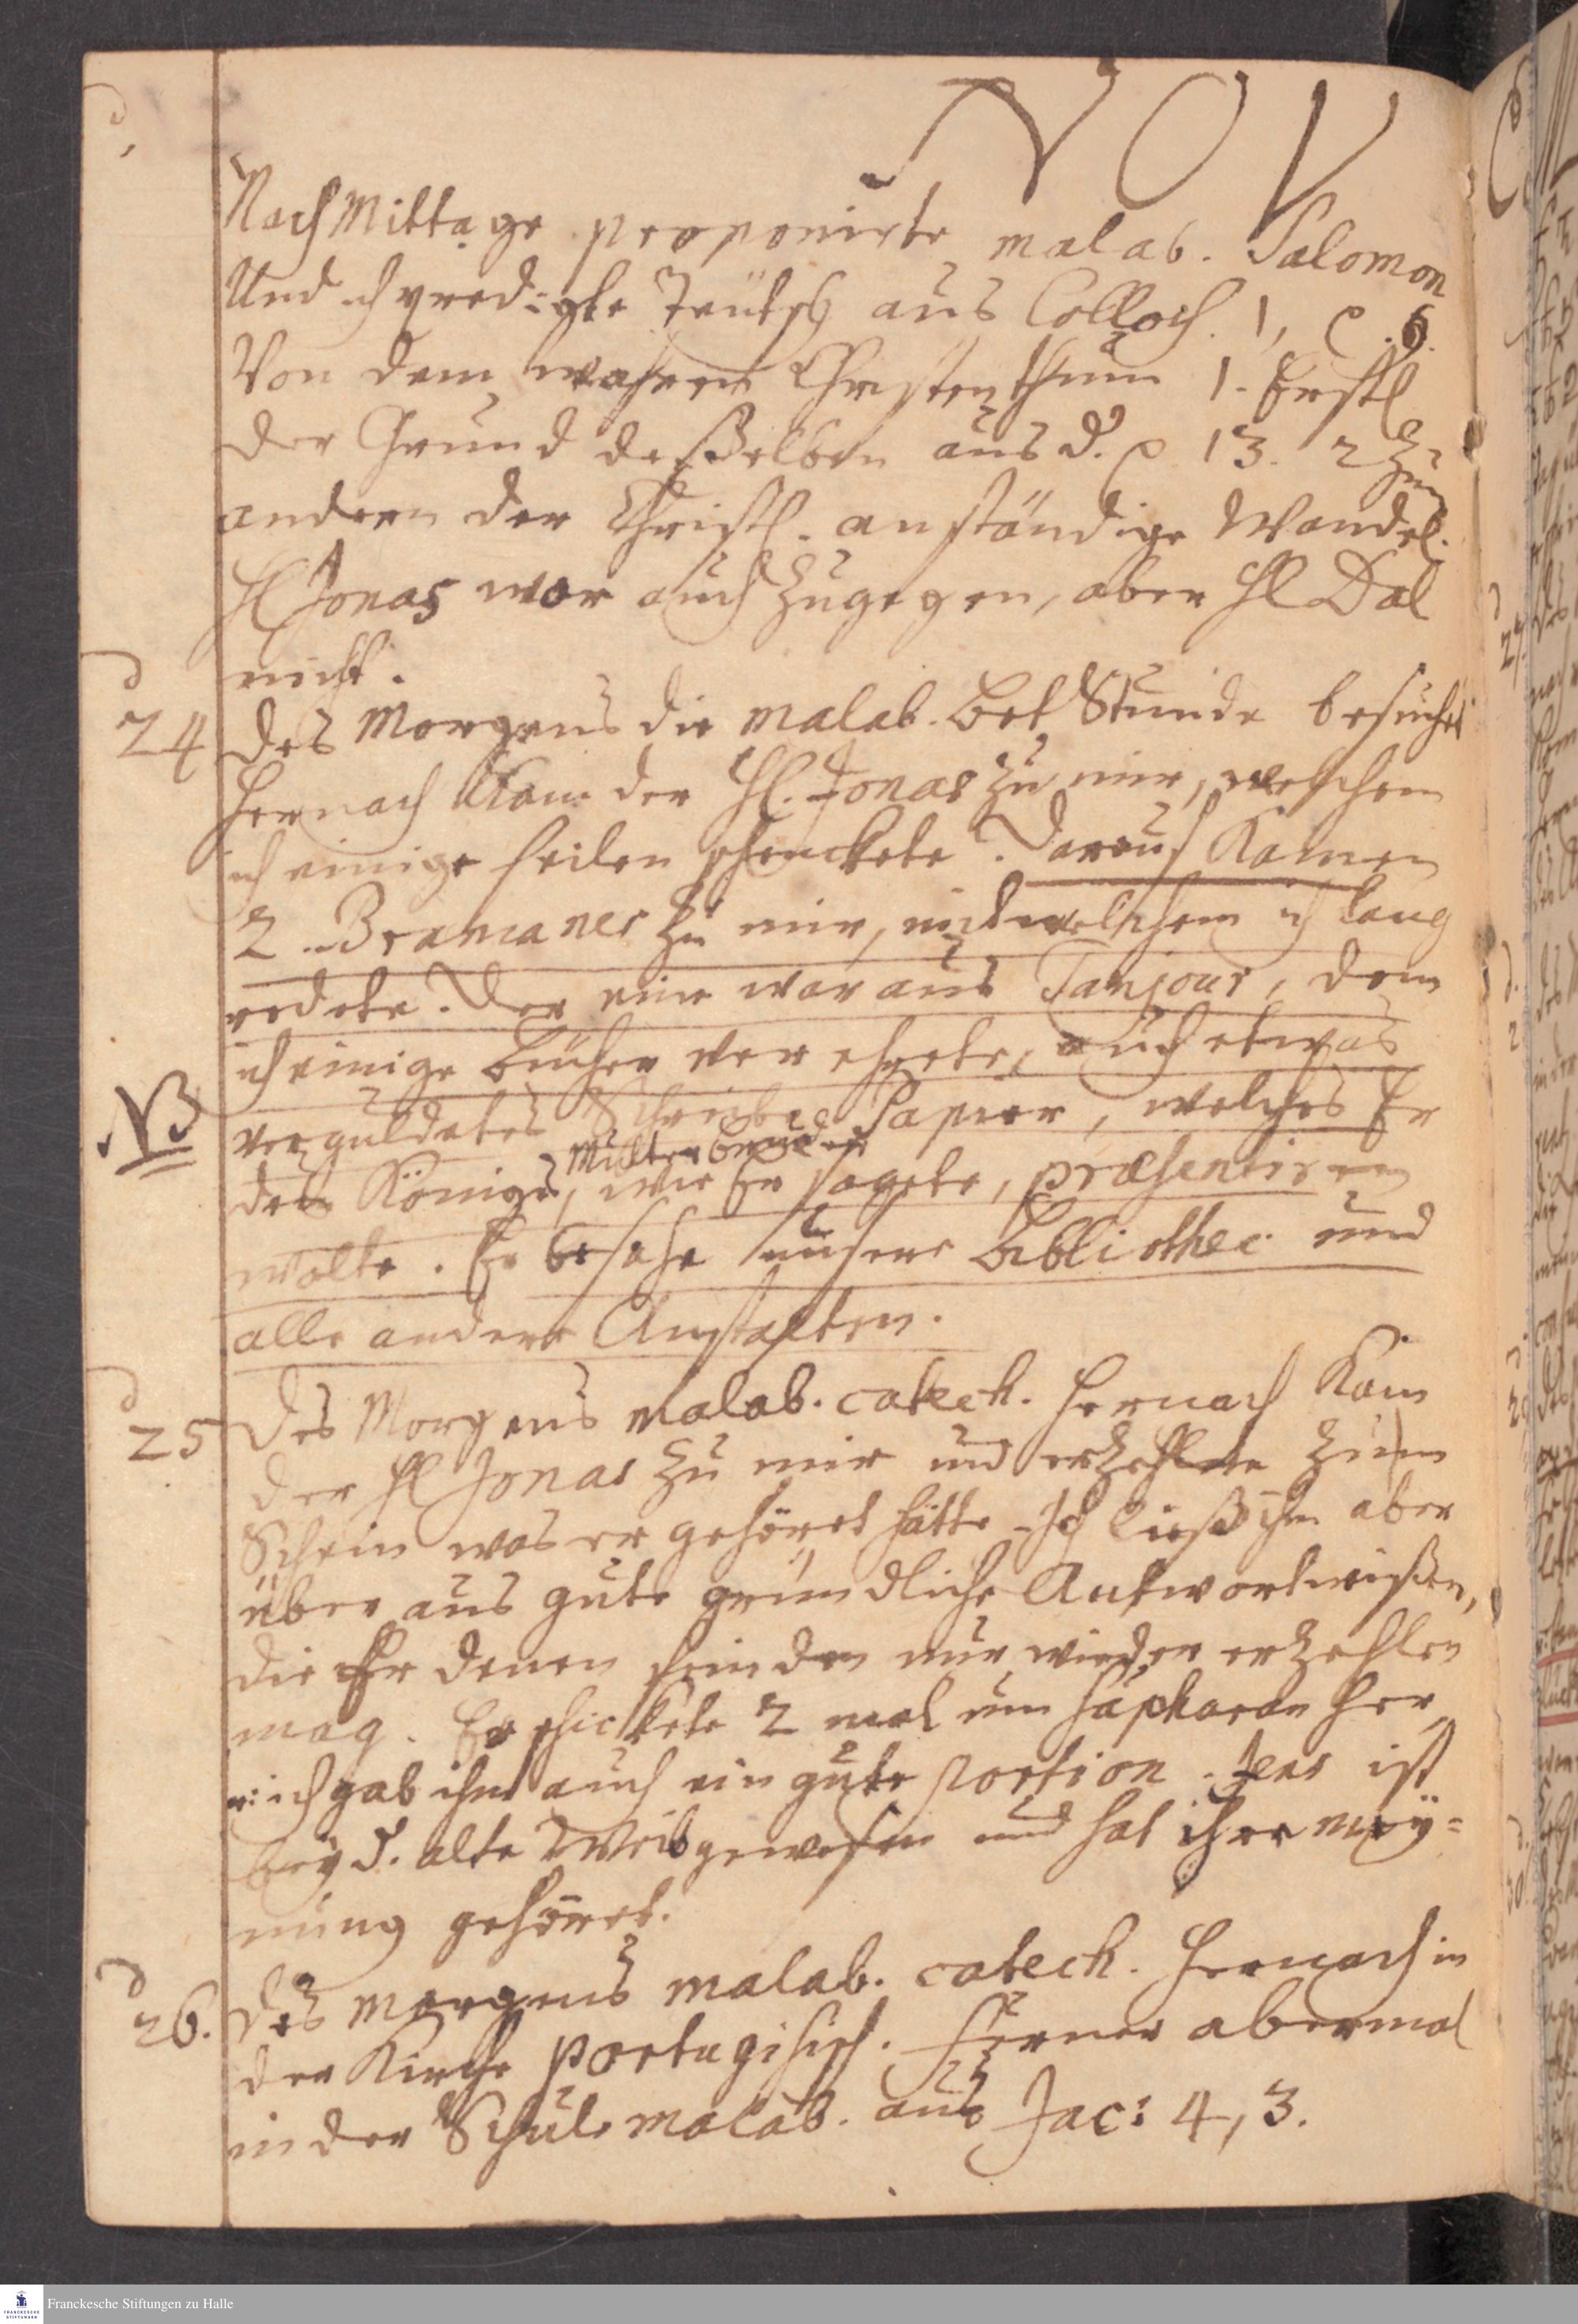 NOV
d.
NachMittage proponirte malab. Salomon
Und ich predigte Teütsch aus Colloss. 1, c. 6.
Von dem wahren Christenthum 1. Erstl
der Grund deßelben aus d. c 13. 2 Zum
andern der Christl. anständige Wandel.
H Jonas war auch zugegen, aber H Dal
nicht.
d 24 des Morgens die malab. Bet Stunde besucht
hernach kam der H. Jonas zu mir, welchem
ich einige feilen schenckete. Darauf kamen
2 Bramanes zu mir, mit welchem ich lang
redete. Der eine war aus Tanjour, dem
ich einige Bücher verehrete, auch etwas
NB verguldetes Schreibe Papier, welches Er
Mutter bruder
des Königs, wie Er sagete, præsentiren
wolte. Er besahe unsere Bibliothec und
alle andere Anstalten.
d 25 des Morgens malab. catech. hernach kam
der H Jonas zu mir und erzehlete zum
Schein was er gehöret hätte. Ich ließ ihn aber
über aus gute gründliche Antwort wißen,
die Er denen feinden nur wieder erzehlen
mag. Er schickete 2 mal um Saphoran her
u: ich gab ihm auch ein gute portion. Jens ist
bey d. alte Weib gewesen und hat ihre mey=
nung gehöret.
d 26. des morgens malab. catech. Hernach in
der Kirche portugisisch. ferner abermal
in der Schule malab. aus Jac: 4, 3.
Franckesche Stiftungen zu Halle